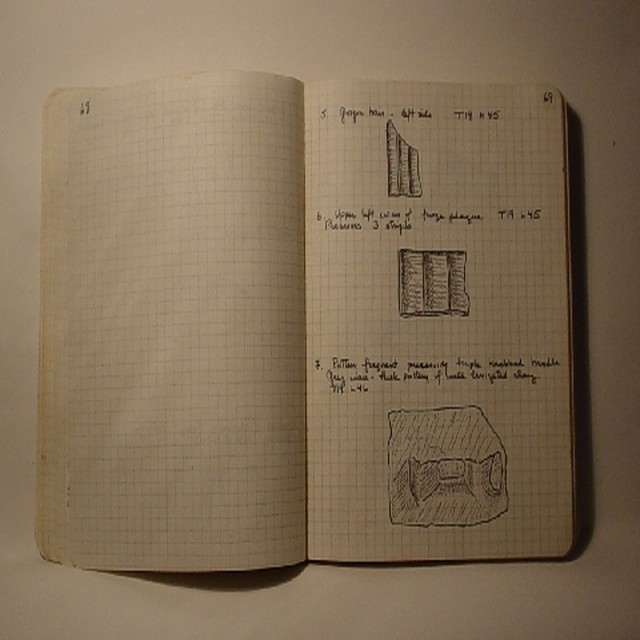 68
69
5. Gorgon hair - left side T19 N45
6. Upper left corner of frieze plaque T19 N45
Preserves 3 strips
7. Pottery fragment preserving triple handle
Grey ware - thick pottery of well levigated clay